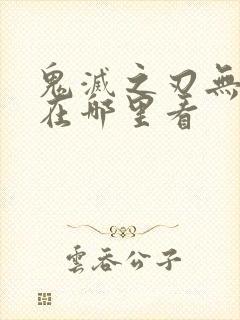 鬼滅之刃無
在哪里看
雲吞公子